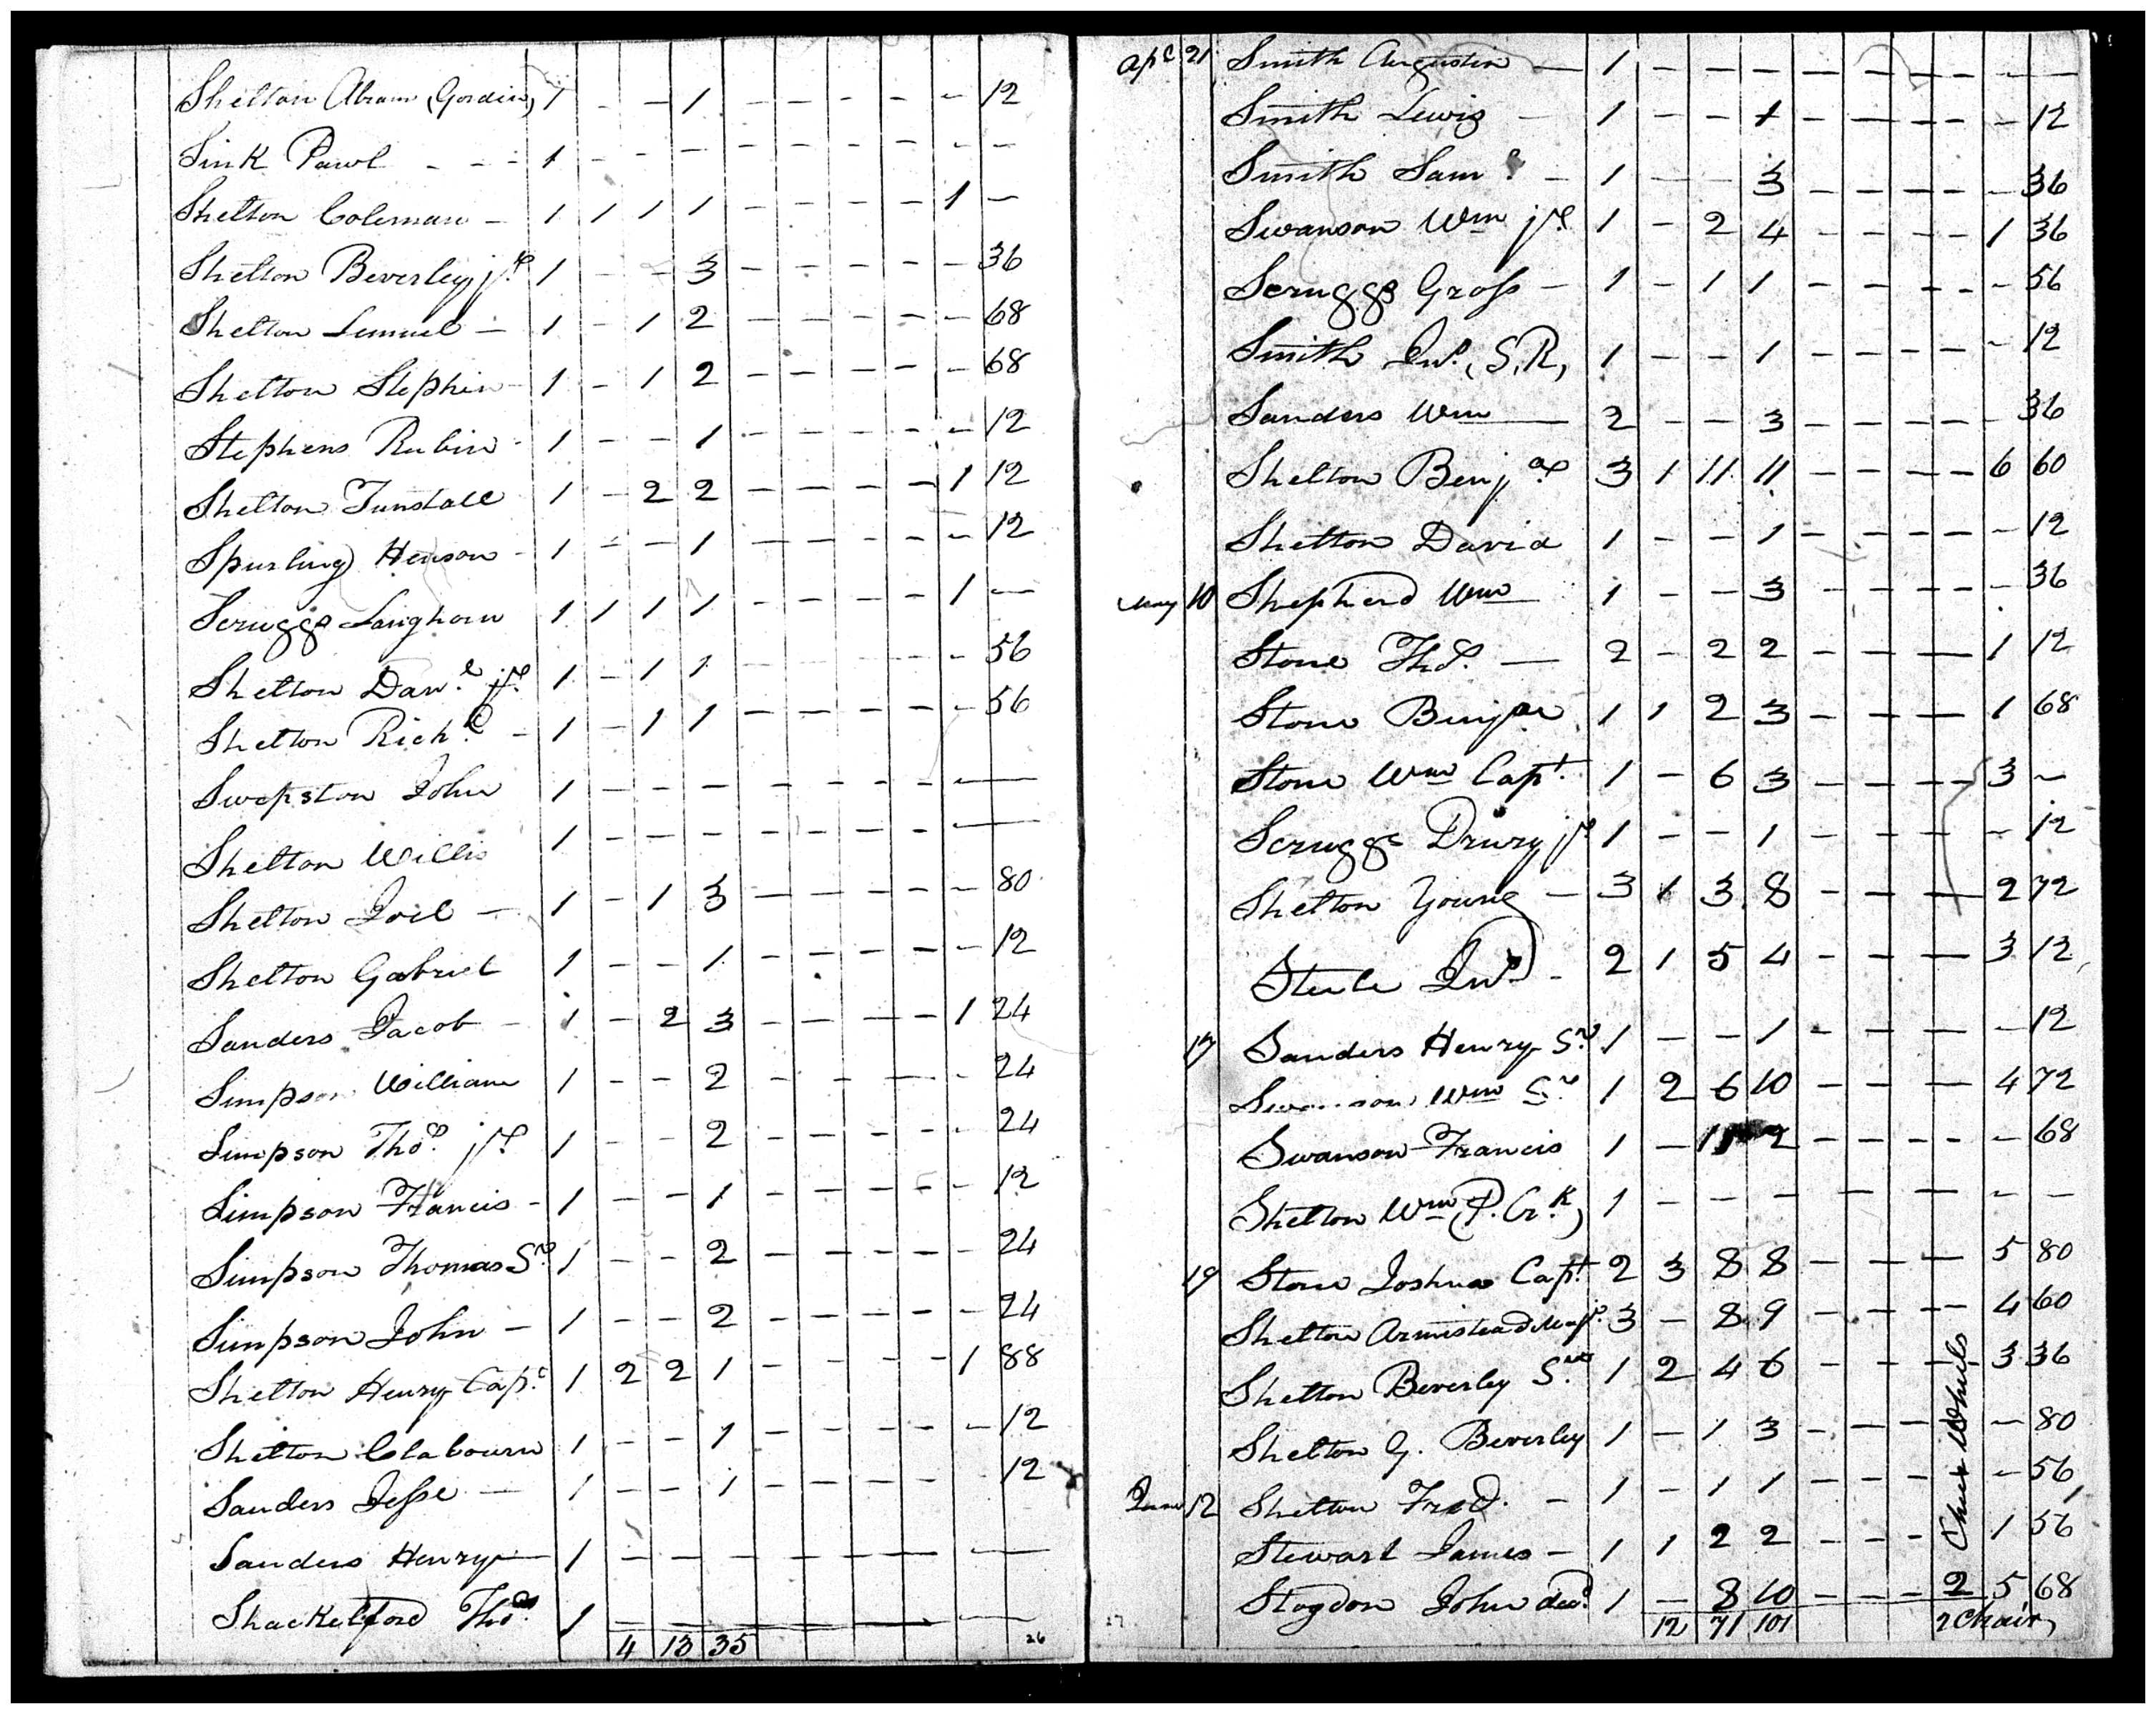 Shelton Abram (Gordin) 1 - - 1 - - - - - 12
Sink Pawl - - - 1 - - - - - - - - -
Shelton Coleman - 1 1 1 1 - - - - 1 -
Shelton Beverley jr. 1 - - 3 - - - - - 36
Shelton Lemuel - 1 - 1 2 - - - - - 68
Shelton Stephen - 1 - 1 2 - - - - - 68
Stephens Rubin - 1 - - 1 - - - - - 12
Shelton Tunstall 1 - 2 2 - - - - 1 12
Spurling Henson - 1 - - 1 - - - - - 12
Scruggs Langhorn 1 1 1 1 - - - - 1 -
Shelton Danl. jr. 1 - 1 1 - - - - - 56
Shelton Richd. - 1 - 1 1 - - - - - 56
Swepston John 1 - - - - - - - -
Shelton Willis 1 - - - - - - - -
Shelton Joel - 1 - 1 3 - - - - - 80
Shelton Gabriel 1 - - 1 - - - - - 12
Sanders Jacob - 1 - 2 3 - - - - 1 24
Simpson William 1 - - 2 - - - - - 24
Simpson Thos. jr. 1 - - 2 - - - - - 24
Simpson Francis - 1 - - 1 - - - - - 12
Simpson Thomas Sr. 1 - - 2 - - - - - 24
Simpson John - 1 - - 2 - - - - - 24
Shelton Henry Capt. 1 2 2 1 - - - - 1 88
Shelton Clabourn 1 - - 1 - - - - - 12
Sanders Jesse - 1 - - 1 - - - - - 12
Sanders Henry - 1 - - - - - - - -
Shackelford Thos. 1 - - - - - - - -
4 13 35 26
Apl 21 Smith Augustin - 1 - - - - - - - - -
Smith Lewis - 1 - - 1 - - - - - 12
Smith Saml. - 1 - - 3 - - - - - 36
Swanson Wm jr. 1 - 2 4 - - - - 1 36
Scruggs Gross - 1 - 1 1 - - - - - 56
Smith Jno. (S.R) 1 - - 1 - - - - - 12
Sanders Wm - 2 - - 3 - - - - - 36
Shelton Benja. 3 1 11 11 - - - - 6 60
Shelton David 1 - - 1 - - - - - 12
May 10 Shepherd Wm 1 - - 3 - - - - - 36
Stone Thos. - 2 - 2 2 - - - 1 12
Stone Benja 1 1 2 3 - - - 1 68
Stone Wm Capt. 1 - 6 3 - - - - 3 -
Scruggs Drury jr 1 - - 1 - - - - - 12
Shelton Young - 3 1 3 8 - - - 2 72
Steele Jno. - 2 1 5 4 - - - 3 12
17 Sanders Henry Sr. 1 - - 1 - - - - 12
Swanson Wm Sr. 1 2 6 10 - - - 4 72
Swanson Francis 1 - 1 2 - - - - - 68
Shelton Wm (P. Crk) 1 - - - - - - - - -
19 Stone Joshua Capt. 2 3 8 8 - - - 5 80
Shelton Armistead Majr. 3 - 8 9 - - - - 4 60
Shelton Beverley Sr. 1 2 4 6 - - - 3 36
Shelton G. Beverley 1 - 1 3 - - - - 80
June 12 Shelton Fred. - 1 - 1 1 - - - - 56
Stewart James - 1 1 2 2 - - - 1 56
Stogdon John decd. 1 - 8 10 - - - 2 5 68
Wheels
12 71 101 2 Chair,
27